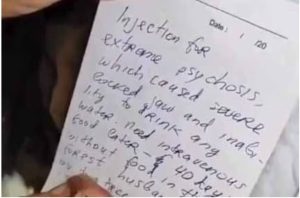 Date: / /20
Injection for
extreme psychosis,
which caused severe
locked jaw and inabi-
lity to drink any
water, need intravenous
food later - 40 days
without food in the
forest husband